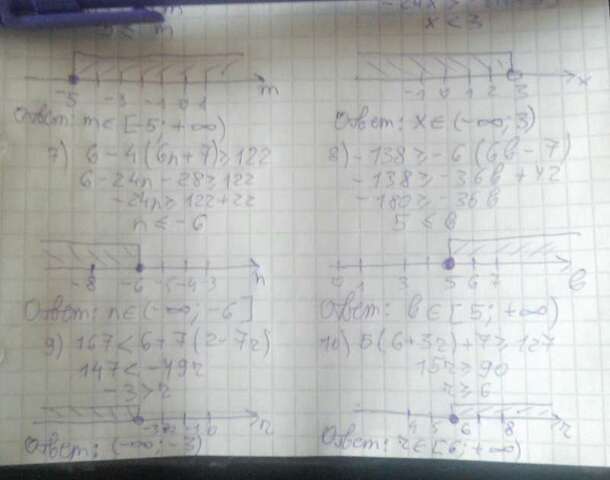 -5 -3 -1 0 1 m
Ответ: m∈[-5; +∞)
7) 6-4(6n+7)≥122
6-24n-28≥122
-24n≥122+22
n≤-6
-8 -6 -5 -4 -3 n
Ответ: n∈(-∞; -6]
9) 167<6+7(2-7r)
147<-49r
-3>r
-3 -2 -1 0 r
Ответ: (-∞; -3)
x<3
-1 0 1 2 3 x
Ответ: x∈(-∞; 3)
8) -138≥-6(6b-7)
-138≥-36b+42
-180≥-36b
5≤b
3 5 6 7 b
Ответ: b∈[5; +∞)
10) 5(6+3r)+7≥127
15r≥90
r≥6
4 5 6 8 r
Ответ: r∈[6; +∞)